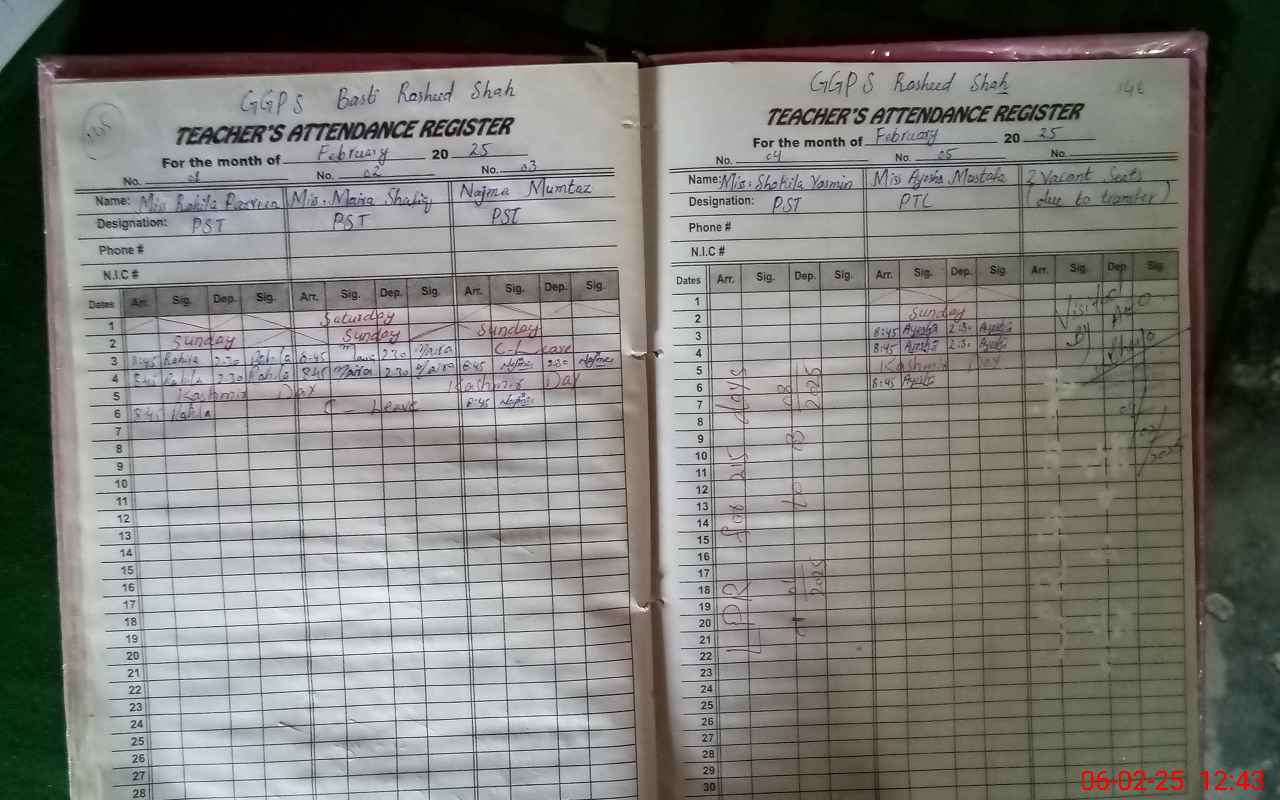 GGPS Basti Rasheed Shah
TEACHER'S ATTENDANCE REGISTER
For the month of February 20 25
No. 01 No. 02 No. 03
Name: Miss Rahila Parveen Miss. Maira Shafiq Najma Mumtaz
Designation: PST PST PST
Phone #
N.I.C #
Dates Arr. Sig. Dep. Sig. Arr. Sig. Dep. Sig. Arr. Sig. Dep. Sig.
1 Saturday
2 Sunday Sunday Sunday
3 8:45 Rahila 2:30 Rahila 8:45 Maira 2:30 Maira C-Leave
4 8:45 Rahila 2:30 Rahila 8:45 Maira 2:30 Maira 8:45 Najma 2:30 Najma
5 Kashmir Day Kashmir Day
6 8:45 Rahila C-Leave 8:45 Najma
7
8
9
10
11
12
13
14
15
16
17
18
19
20
21
22
23
24
25
26
27
28
GGPS Rasheed Shah
TEACHER'S ATTENDANCE REGISTER
For the month of February 20 25
No. 04 No. 05 No.
Name: Miss. Shakila Yasmin Miss Ayesha Mustafa 2 Vacant Seats
Designation: PST PTC (due to transfer)
Phone #
N.I.C #
Dates Arr. Sig. Dep. Sig. Arr. Sig. Dep. Sig. Arr. Sig. Dep. Sig.
1
2 Sunday
3 8:45 Ayesha 2:30 Ayesha
4 8:45 Ayesha 2:30 Ayesha
5 Kashmir Day
6 8:45 Ayesha
7
8
9
10
11
12
13
14
15
16
17
18
19
20
21
22
23
24
25
26
27
28
29
30
LPR for 215 days
2025 to 2025
Visited
by
06-02-25 12:43